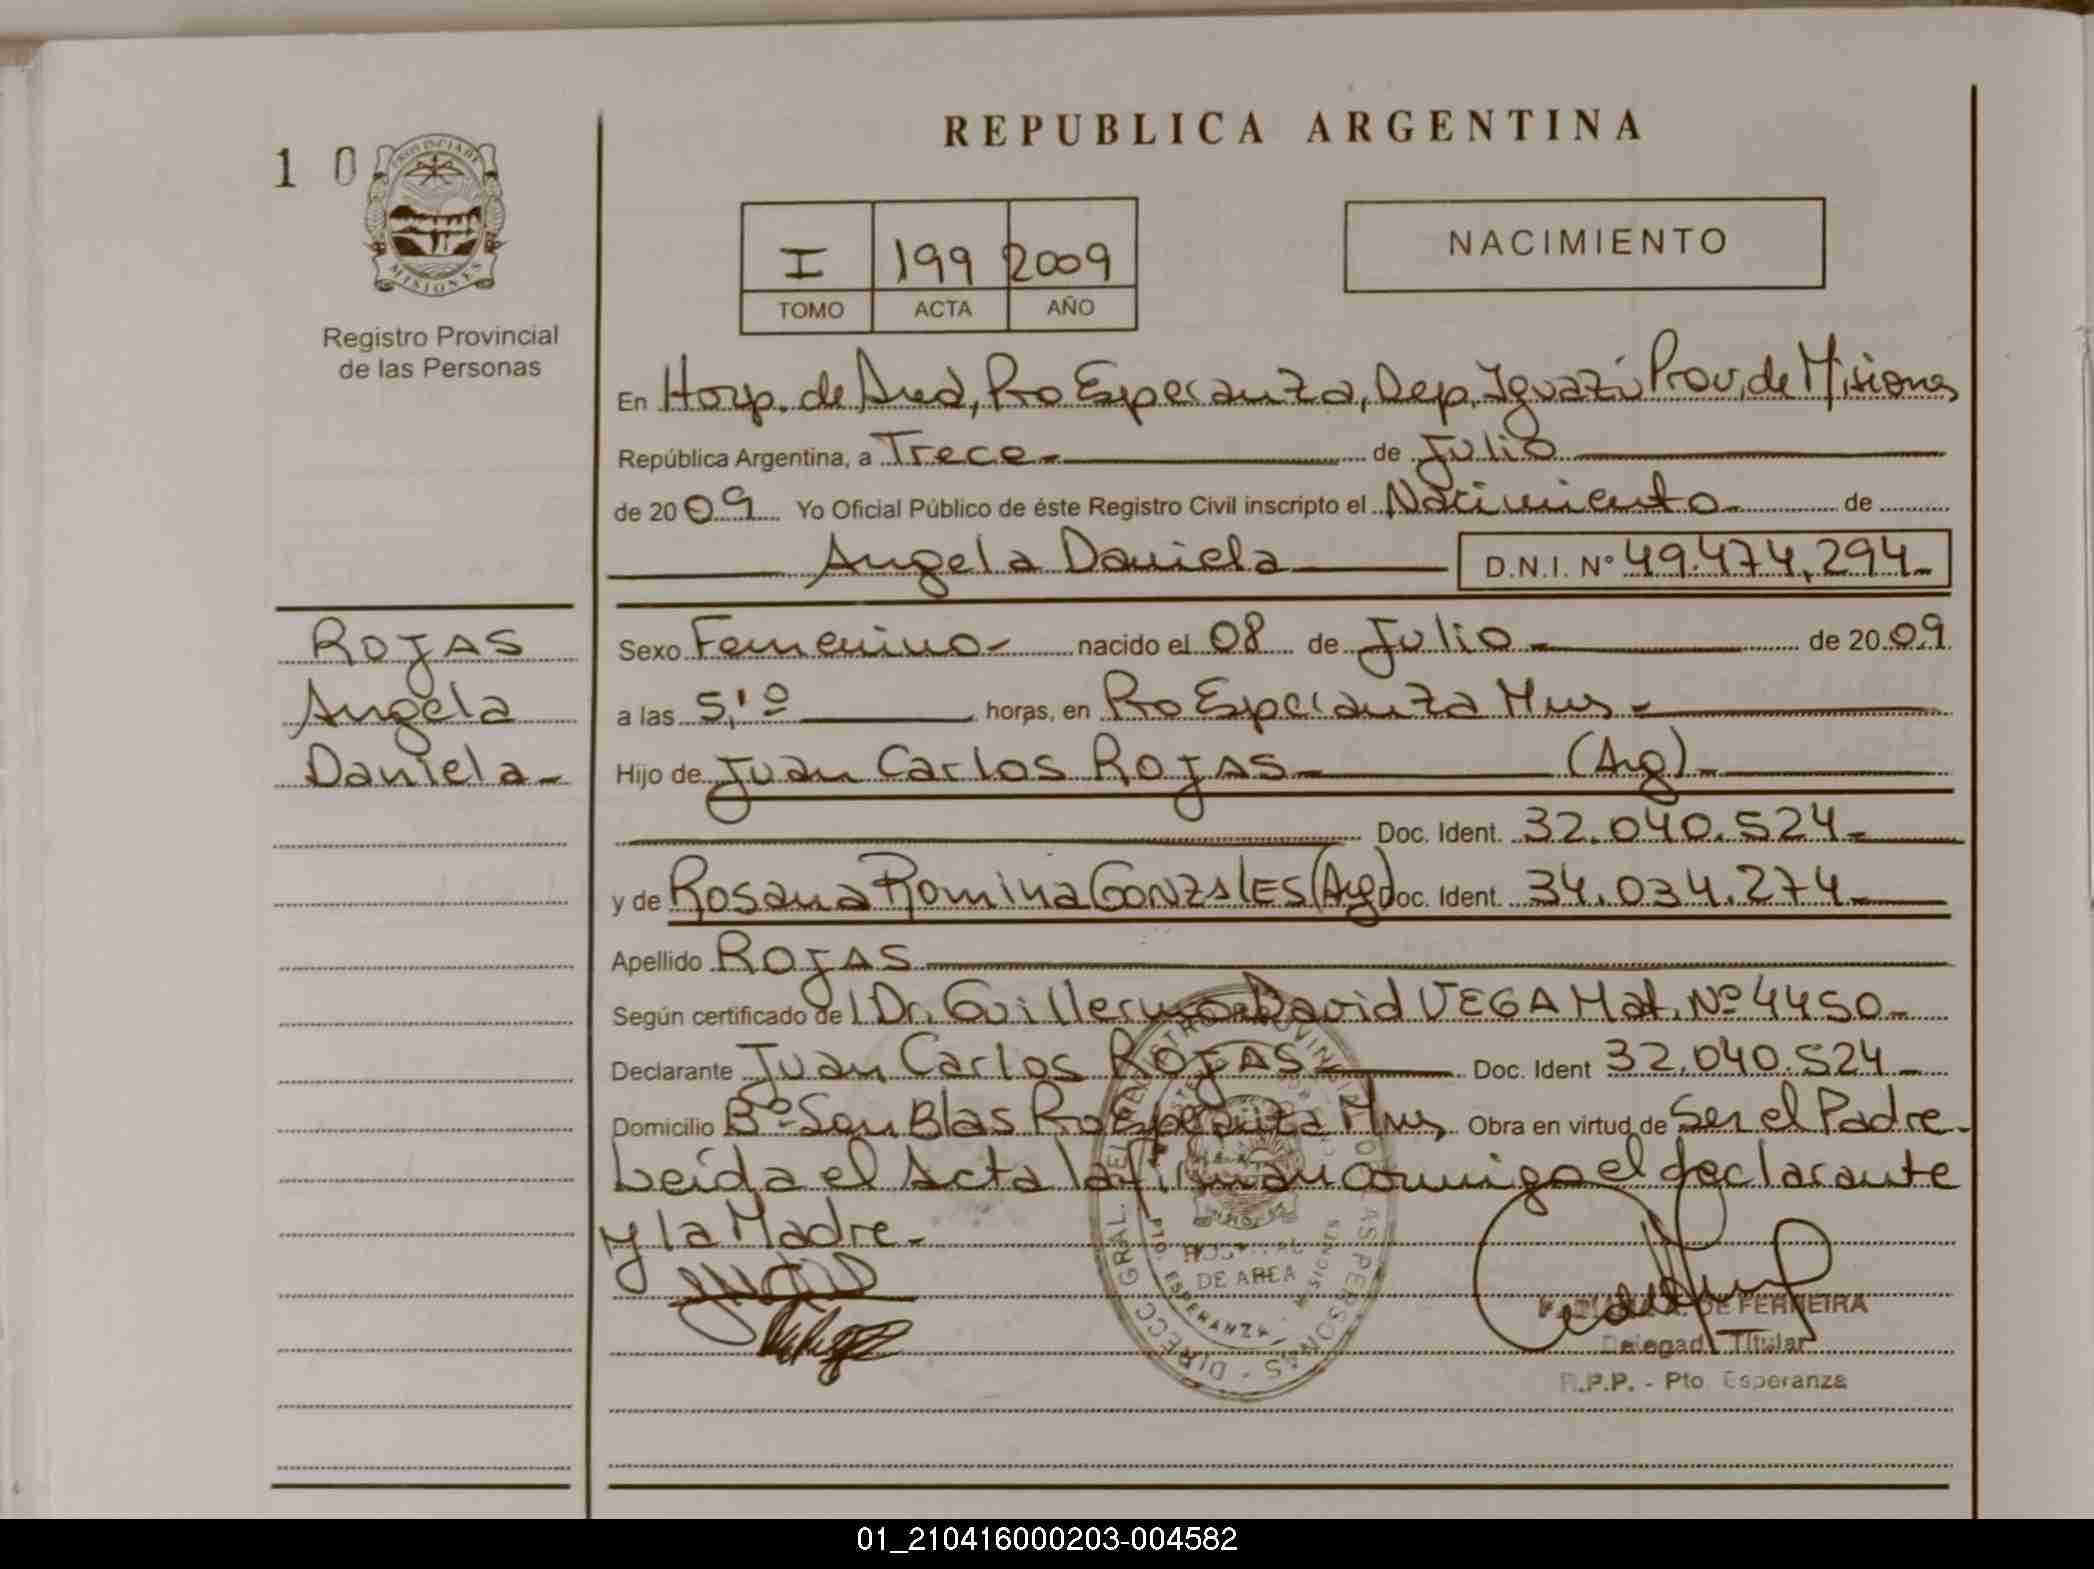 REPUBLICA ARGENTINA
1 0
PROVINCIA DE
MISIONES
Registro Provincial
de las Personas
I 199 2009
TOMO ACTA AÑO
NACIMIENTO
En Hosp. de Area, Pto Esperanza, Dep. Iguazú Prov. de Misiones
República Argentina, a Trece de Julio
de 2009 Yo Oficial Público de éste Registro Civil inscripto el Nacimiento de
Angela Daniela D.N.I. Nº 49.474.294
ROJAS
Angela
Daniela
Sexo Femenino nacido el 08 de Julio de 2009
a las 5,1º horas, en Pto Esperanza Mnes
Hijo de Juan Carlos ROJAS (Arg)
Doc. Ident. 32.040.524
y de Rosana Romina GONZALES (Arg) Doc. Ident. 34.034.274
Apellido ROJAS
Según certificado del Dr. Guillermo David VEGA Mat. Nº 4450
Declarante Juan Carlos ROJAS Doc. Ident 32.040.524
Domicilio Bº San Blas Pto Esperanza Mnes Obra en virtud de Ser el Padre
Leída el Acta la firman conmigo el declarante
y la Madre
HOSPITAL
DE AREA
DE FERREIRA
Delegad Titular
R.P.P. - Pto Esperanza
01_210416000203-004582